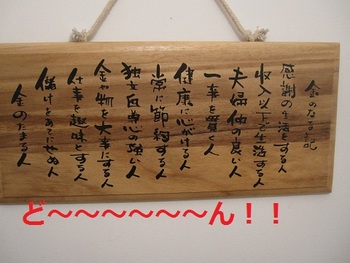 金のなる記
感謝の生活をする人
収入以下で生活する人
夫婦仲の良い人
一事を貫く人
健康に心がける人
常に節約する人
独立自尊心の強い人
金や物を大事にする人
仕事を趣味とする人
儲けをあてにせぬ人
金のたまる人
ど～～～～～～～ん！！